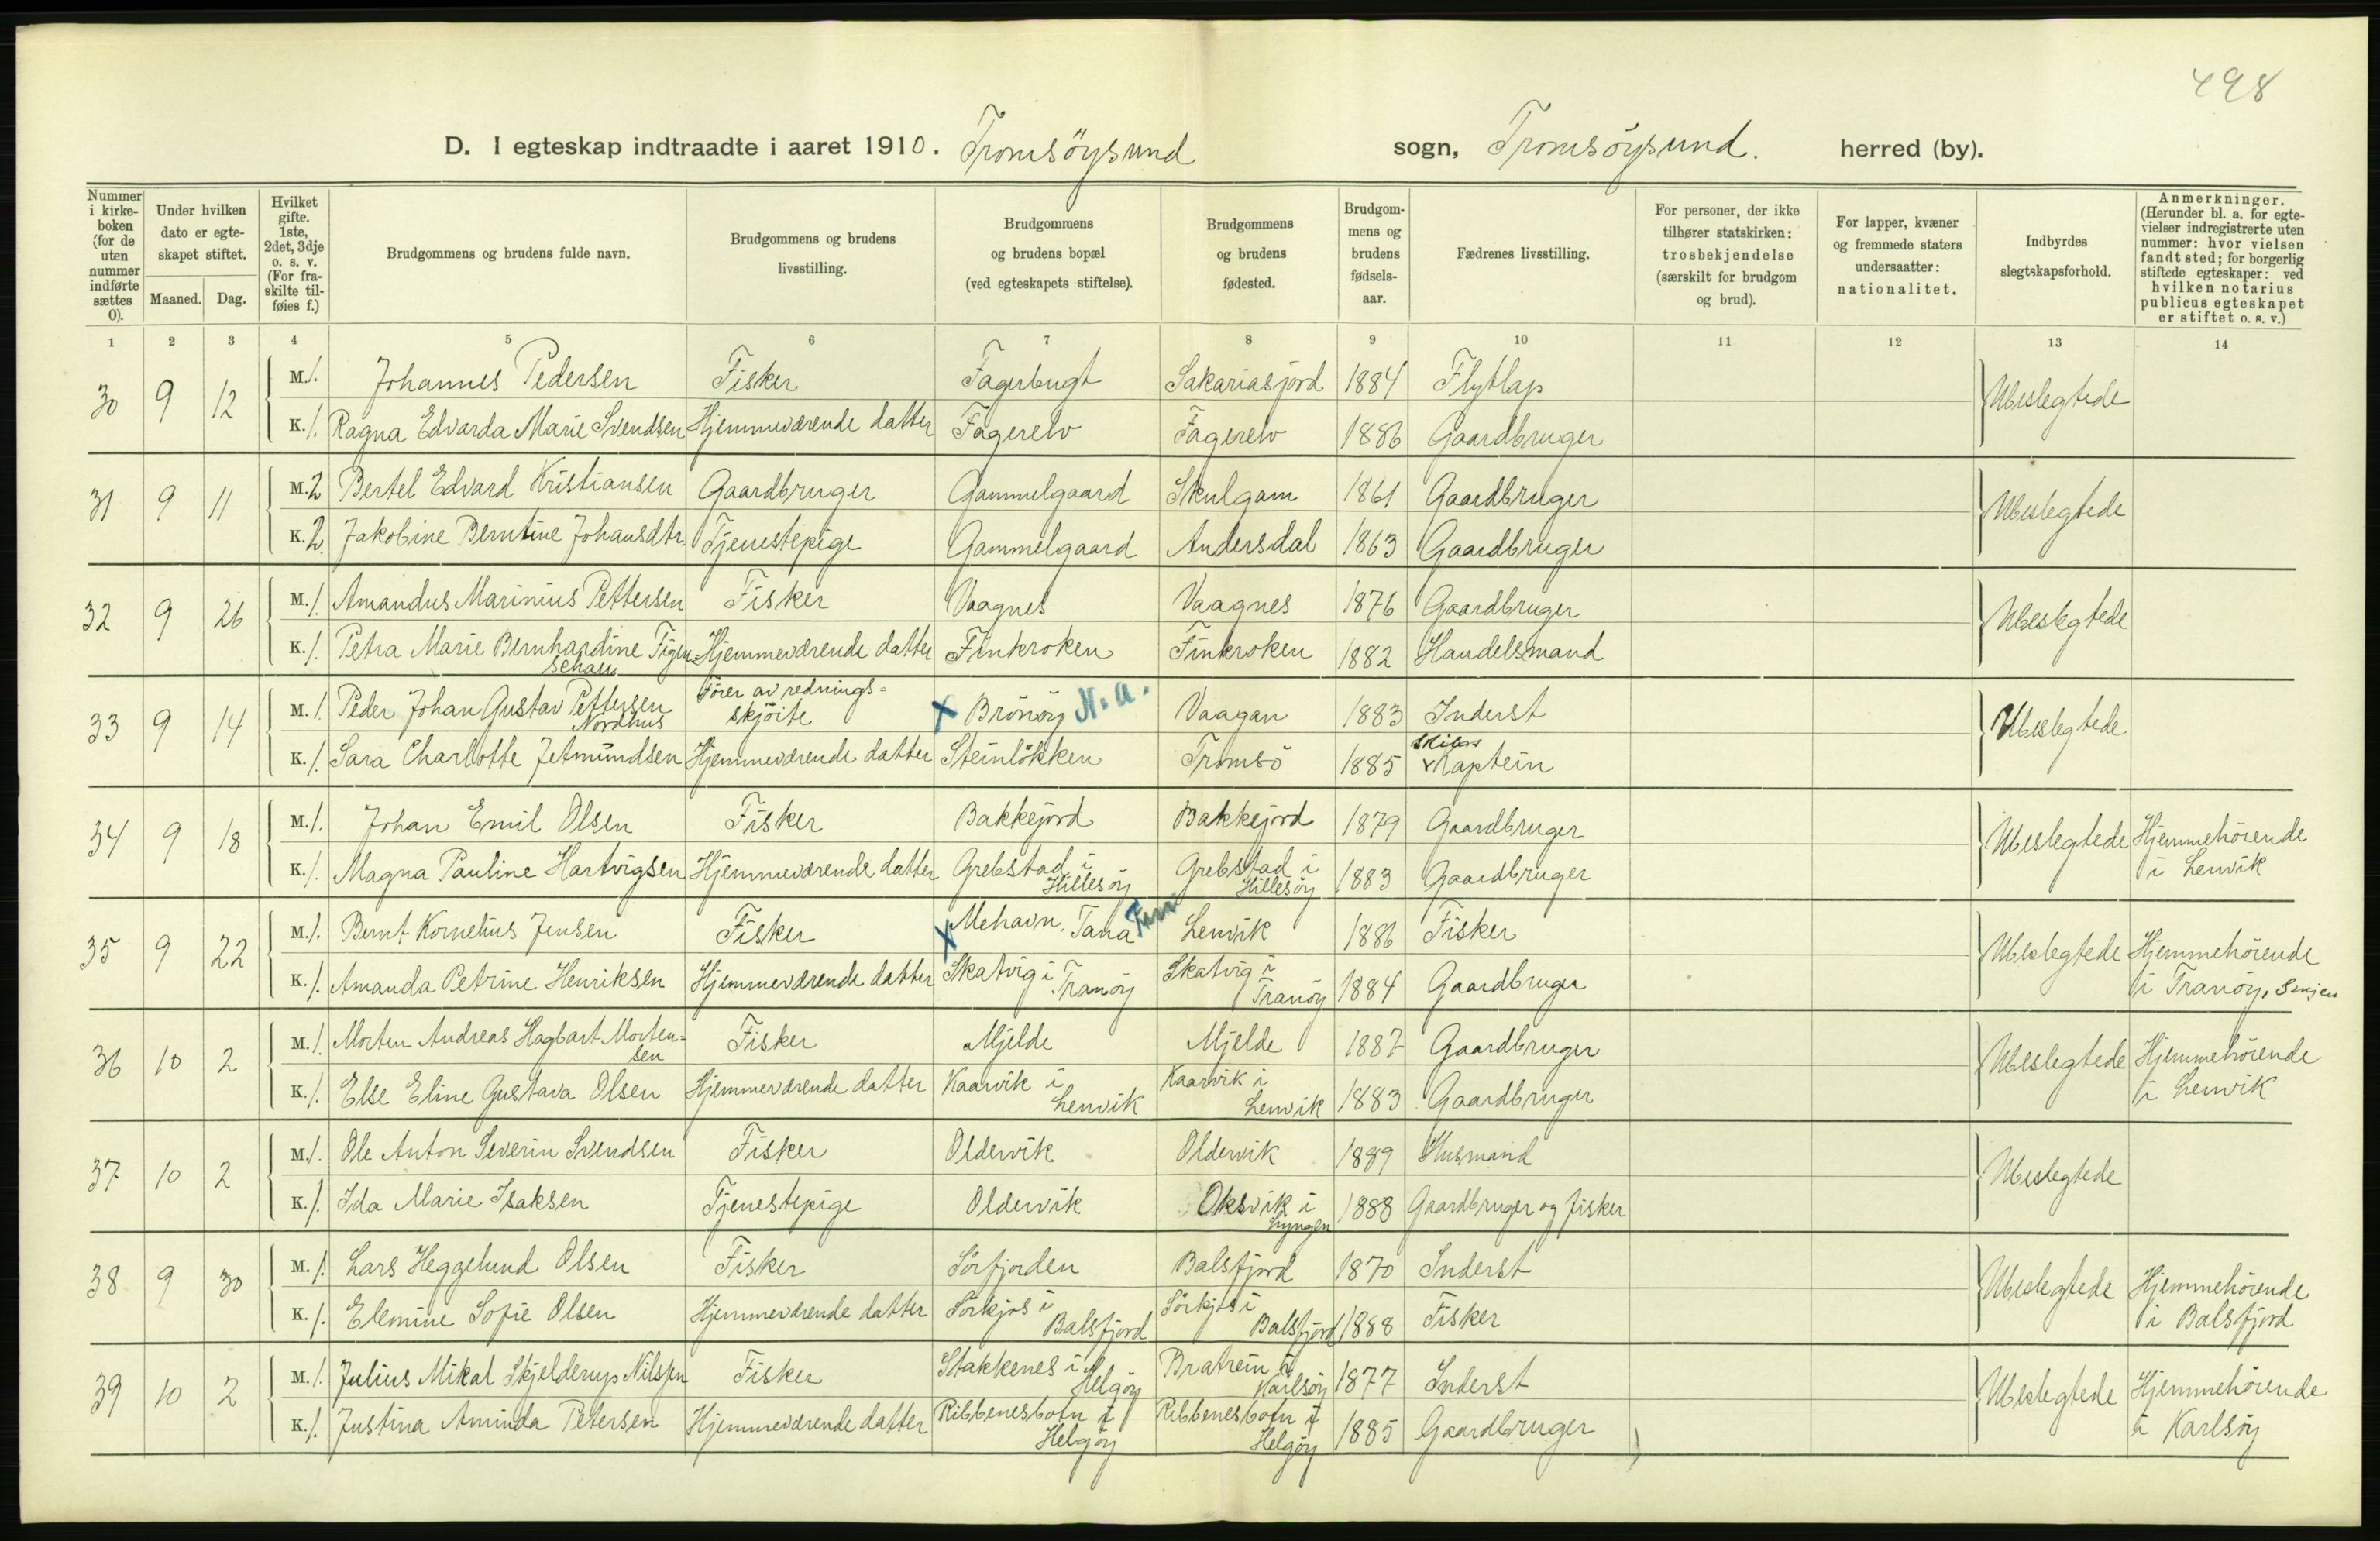 498
D. I egteskap indtraadte i aaret 1910. Tromsöysund sogn, Tromsöysund. herred (by).
Nummer i kirke-boken (for de uten nummer indførte sættes 0).
Under hvilken dato er egte-skapet stiftet.
Maaned. Dag.
Hvilket gifte. 1ste, 2det, 3dje o. s. v. (For fra-skilte til-føies f.)
Brudgommens og brudens fulde navn.
Brudgommens og brudens livsstilling.
Brudgommens og brudens bopæl (ved egteskapets stiftelse).
Brudgommens og brudens fødested.
Brudgom-mens og brudens fødsels-aar.
Fædrenes livsstilling.
For personer, der ikke tilhører statskirken: trosbekjendelse (særskilt for brudgom og brud).
For lapper, kvæner og fremmede staters undersaatter: nationalitet.
Indbyrdes slegtskapsforhold.
Anmerkninger. (Herunder bl. a. for egte-vielser indregistrerte uten nummer: hvor vielsen fandt sted; for borgerlig stiftede egteskaper: ved hvilken notarius publicus egteskapet er stiftet o. s. v.)
1 2 3 4 5 6 7 8 9 10 11 12 13 14
30 9 12 M. 1. Johannes Pedersen Fisker Fagerbugt Sakariasjord 1884 Flytlap Ubeslegtede
K. 1. Ragna Edvarda Marie Svendsen Hjemmeværende datter Fagerelv Fagerelv 1886 Gaardbruger
31 9 11 M. 2 Bertel Edvard Kristiansen Gaardbruger Gammelgaard Skulgam 1861 Gaardbruger Ubeslegtede
K. 2. Jakobine Berntine Johansdtr. Tjenestepige Gammelgaard Andersdal 1863 Gaardbruger
32 9 26 M. 1. Amandus Marinius Pettersen Fisker Vaagnes Vaagnes 1876 Gaardbruger Ubeslegtede
K. 1. Petra Marie Bernhardine Figen-schau Hjemmeværende datter Finkroken Finkroken 1882 Handelsmand
33 9 14 M. 1. Peder Johan Gustav Pettersen Nordhus Fører av rednings-skjöite x Brönöy N. a. Vaagan 1883 Inderst Ubeslegtede
K. 1. Sara Charlotte Jetmundsen Hjemmeværende datter Steinlökken Tromsö 1885 skibs Kaptein
34 9 18 M. 1. Johan Emil Olsen Fisker Bakkejord Bakkejord 1879 Gaardbruger Ubeslegtede Hjemmehörende i Lenvik
K. 1. Magna Pauline Hartvigsen Hjemmeværende datter Grebstad i Hillesöy Grebstad i Hillesöy 1883 Gaardbruger
35 9 22 M. 1. Bernt Kornelius Jensen Fisker x Mehavn. Tana Lenvik 1886 Fisker Ubeslegtede Hjemmehörende i Tranöy, Senjen
K. 1. Amanda Petrine Henriksen Hjemmeværende datter Skatvig i Tranöy Skatvig i Tranöy 1884 Gaardbruger
36 10 2 M. 1. Morten Andreas Hagbart Morten-sen Fisker Mjelde Mjelde 1887 Gaardbruger Ubeslegtede Hjemmehörende i Lenvik
K. 1. Else Eline Gustava Olsen Hjemmeværende datter Kaarvik i Lenvik Kaarvik i Lenvik 1883 Gaardbruger
37 10 2 M. 1. Ole Anton Severin Svendsen Fisker Oldervik Oldervik 1889 Husmand Ubeslegtede
K. 1. Ida Marie Isaksen Tjenestepige Oldervik Oksvik i Lyngen 1888 Gaardbruger og fisker
38 9 30 M. 1. Lars Heggelund Olsen Fisker Sörfjorden Balsfjord 1870 Inderst Ubeslegtede Hjemmehörende i Balsfjord
K. 1. Elemine Sofie Olsen Hjemmeværende datter Sörkjos i Balsfjord Sörkjos i Balsfjord 1888 Fisker
39 10 2 M. 1. Julius Mikal Skjelderup Nilssen Fisker Stakkenes i Helgöy Bratrein i Karlsöy 1877 Inderst Ubeslegtede Hjemmehörende i Karlsöy
K. 1. Justina Aminda Petersen Hjemmeværende datter Ribbenesbotn i Helgöy Ribbenesbotn i Helgöy 1885 Gaardbruger